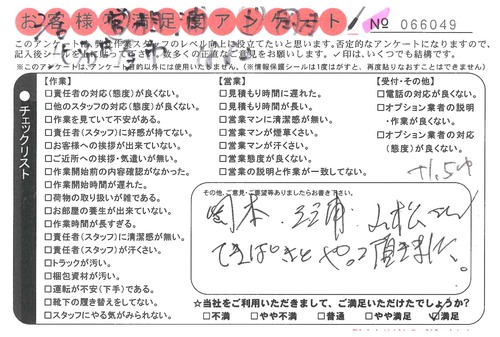 お客様満足度アンケート！
№ 066049
このアンケートは、
作業スタッフのレベル向上に役立てたいと思います。否定的なアンケートになりますので、
数多くの正直なご意見をお願いします。✓印は、いくつでも結構です。
※このアンケートは、アンケート目的以外には使用いたしません。(※情報保護シールは1度はがすと、再度貼りなおすことはできません)
チェックリスト
【作業】
□責任者の対応(態度)が良くない。
□他のスタッフの対応(態度)が良くない。
□作業を見ていて不安がある。
□責任者(スタッフ)に好感が持てない。
□お客様への挨拶が出来ていない。
□ご近所への挨拶・気遣いが無い。
□作業開始前の内容確認がなかった。
□作業開始時間が遅れた。
□荷物の取り扱いが雑である。
□お部屋の養生が出来ていない。
□作業時間が長すぎる。
□責任者(スタッフ)に清潔感が無い。
□責任者(スタッフ)が汗くさい。
□トラックが汚い。
□梱包資材が汚い。
□運転が不安(下手)である。
□靴下の履き替えをしてない。
□スタッフにやる気がみられない。
【営業】
□見積もり時間に遅れた。
□見積もり時間が長い。
□営業マンに清潔感が無い。
□営業マンが煙草くさい。
□営業マンが汗くさい。
□営業態度が良くない。
□営業の説明と作業が一致してない。
【受付・その他】
□電話の対応が良くない。
□オプション業者の説明
・作業が良くない。
□オプション業者の対応
(態度)が良くない。
その他、ご意見・ご要望等ありましたらお書き下さい。
岡本、三浦、小松さん
てきぱきとやって頂きました。
☆当社をご利用いただきまして、ご満足いただけたでしょうか？
□不満 □やや不満 □普通 □やや満足 ☑満足